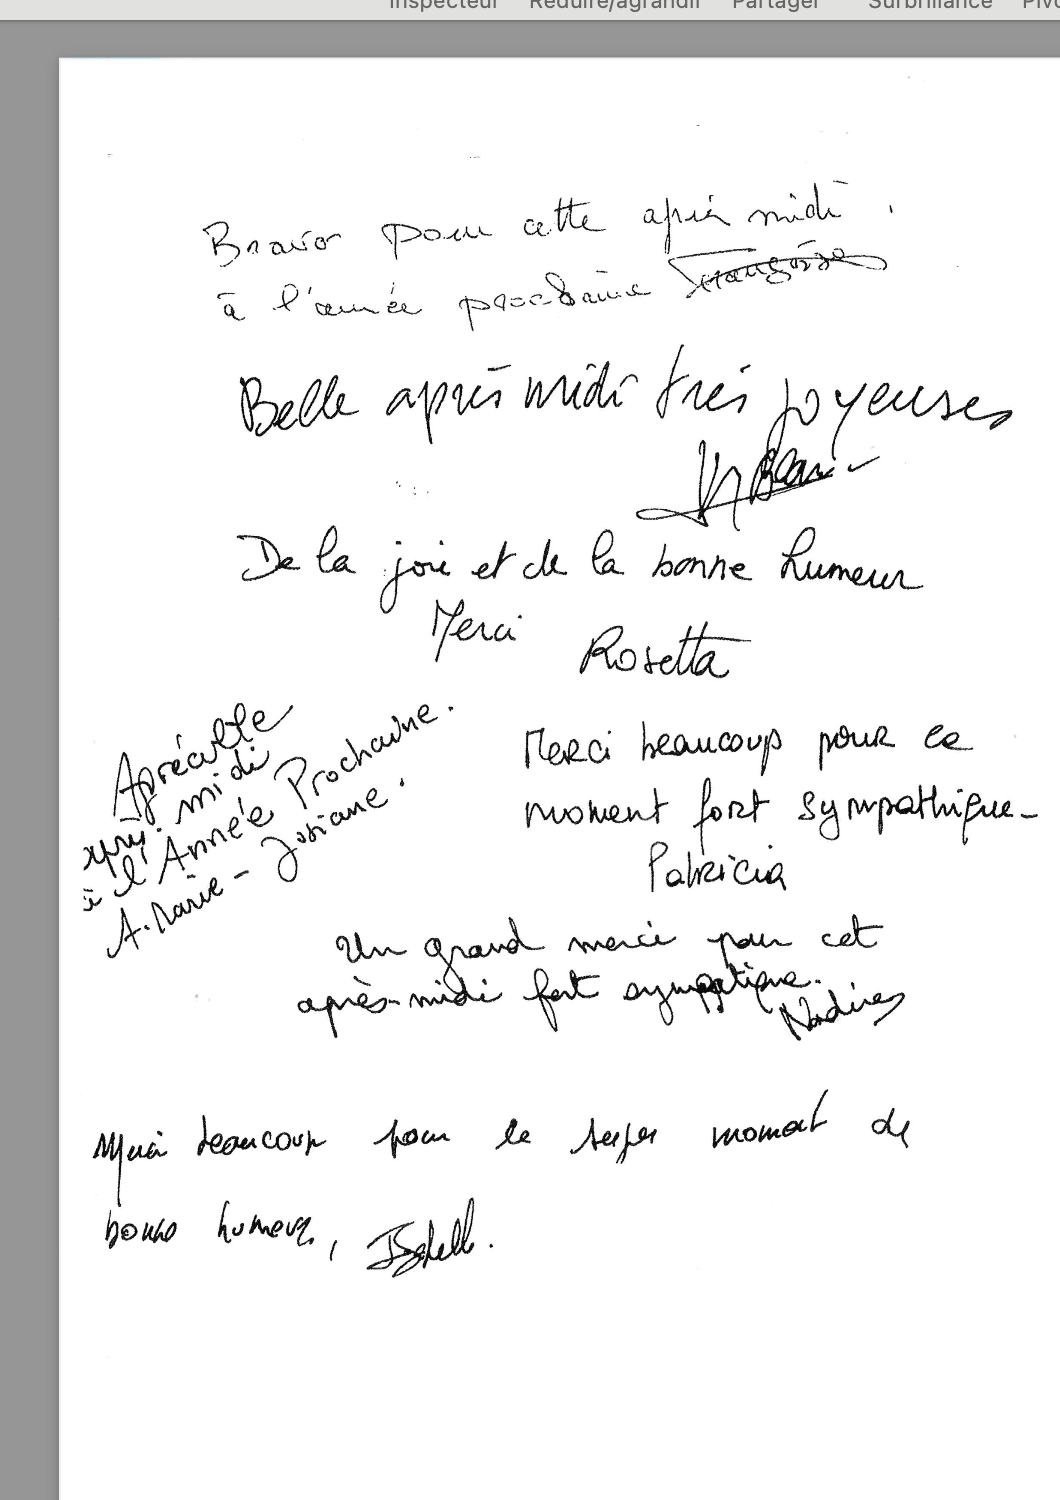 Inspecteur Réduire/agrandir Partager Surbrillance
Bravo pour cette après midi.
à l'année prochaine Françoise
Belle après midi très joyeuses
De la joie et de la bonne humeur
Merci Rosetta
Apréciable
après midi
à l'Année Prochaine.
A. Marie - Josiane.
Merci beaucoup pour ce
moment fort sympathique_
Patricia
Un grand merci pour cet
après-midi fort sympatique.
Nadine
Merci beaucoup pour le super moment de
bonne humeur,